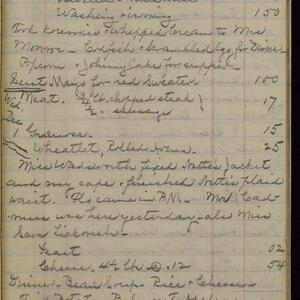 Washing & ironing 150
Took koumiss & whipped Cream to Mrs
Monroe - Codfish & Scrambled Eggs for Dinner
Popcorn & Johnny Cake for supper.
Sent Mays for red Sweater 100
Meat. 1/2 lb. chopped steak } 17
1/2 " sausage
Wed.
Dec
1 Granose 15
Wheatlet, Rolled Avena. 25
Miss Wadsworth fixed Nettie's Jacket
and my cape & finished Nettie's plaid
waist. Fl. came in P.M. Mrs. Cad-
mus was here yesterday - also Miss
Sara
Yeast 02
Cheese 4 1/2 lbs @ .12 54
Dinner - Bean Soup - Rice & Cheese -